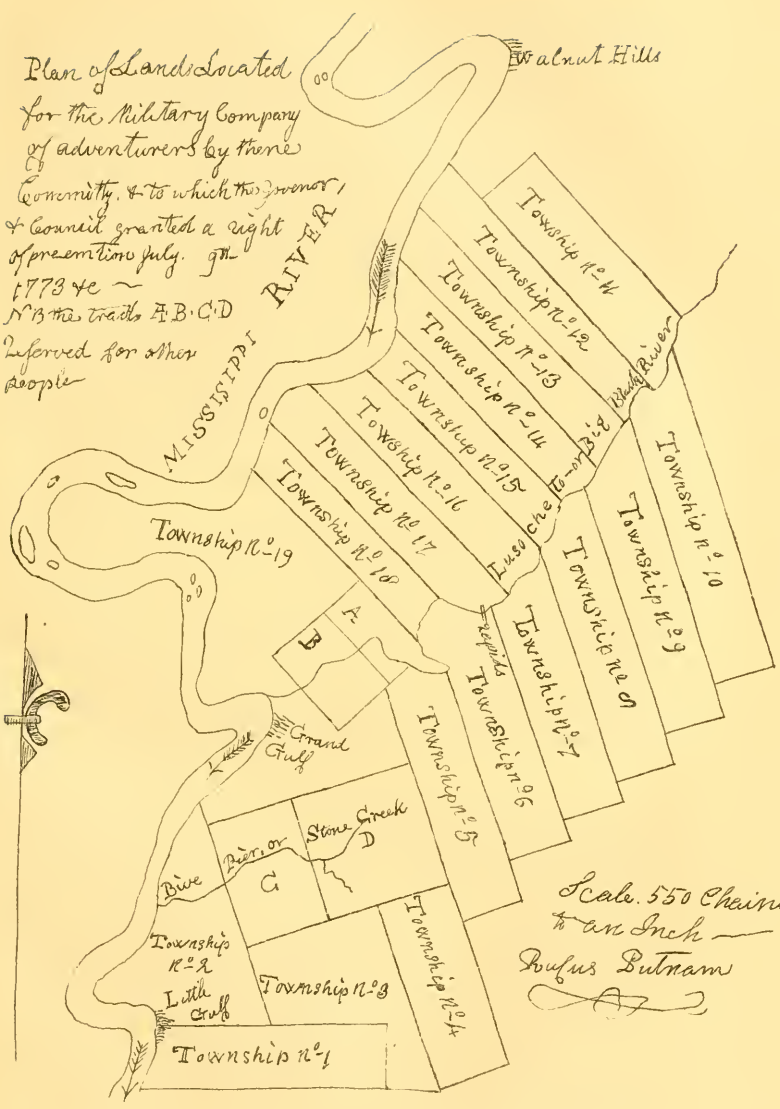 Plan of Lands Located
for the Military Company
of adventurers by there
Committy. & to which the Govenor,
& Council granted a right
of preemtion July. 9th
1773 &c ~
NB the tracts A·B·C·D
Reserved for other
people
Walnut Hills
MISSISSIPPI RIVER
Township No 11
Township No 12
Township No 13
Township No 14
Township No 15
Towship No 16
Township No 17
Township No 18
Township No 19
Lusochetto-or Big Black River
Township No 10
Township No 9
Township No 8
Township No 7
rapids
Township No 6
Township No 5
A
B
Grand
Gulf
Stone Creek
D
Bive Pier, or
C
Township
No 2
Little
Gulf
Township No 3
Township No 4
Township No 1
Scale. 550 Chains
to an Inch
Rufus Putnam